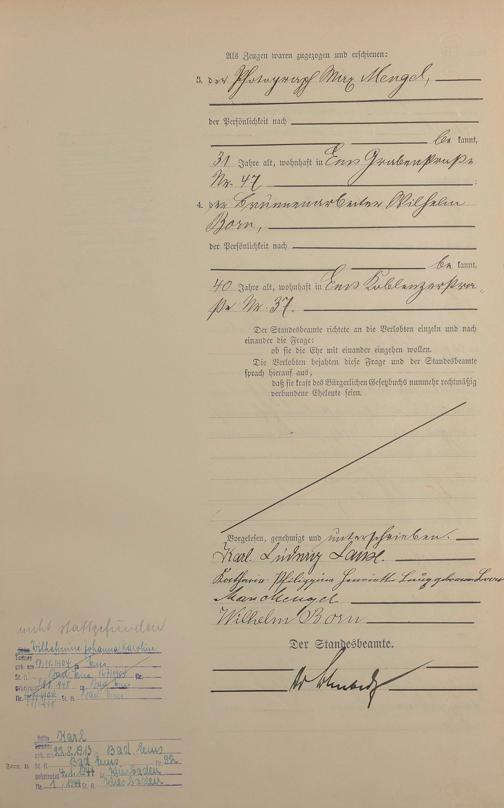 Als Zeugen waren zugezogen und erschienen:
3. der Photograph Max Mengel,
der Persönlichkeit nach
be kannt,
31 Jahre alt, wohnhaft in Ems Grabenstraße
Nr. 47 ;
4. der Brunnenarbeiter Wilhelm
Born,
der Persönlichkeit nach
be kannt,
40 Jahre alt, wohnhaft in Ems Koblenzerstra-
ße Nr. 37.
Der Standesbeamte richtete an die Verlobten einzeln und nach
einander die Frage:
ob sie die Ehe mit einander eingehen wollen.
Die Verlobten bejahten diese Frage und der Standesbeamte
sprach hierauf aus,
daß sie kraft des Bürgerlichen Gesetzbuchs nunmehr rechtmäßig
verbundene Eheleute seien.
Vorgelesen, genehmigt und unterschrieben.
Karl Ludwig
Philippina Henriette geborene
Max Mengel
Wilhelm Born
Der Standesbeamte.
nicht stattgefunden
Wilhelmine Johanna Karoline
Bad Ems
Karl
22.2.1913 Bad Ems
Bad Ems 22
1941 Wiesbaden
Nr. 1 Wiesbaden